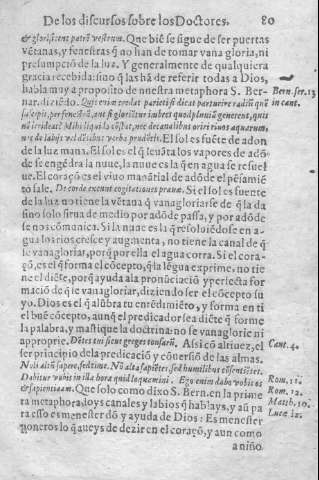 De los discursos sobre los Doctores. 80
& glorificent patrẽ vestrum. Que biẽ se sigue de ser puertas
vẽtanas, y fenestras q̃ no han de tomar vana gloria, ni
presumpciõ de la luz. Y generalmente de qualquiera
gracia recebida: sino q̃ las hã de referir todas a Dios,
habla muy a proposito de nuestra metaphora S. Ber-
nar. diziẽdo. Quis enim credat parieti si dicat parturire radiũ quẽ
suscipit, per fenestrã, aut si gloriẽtur imbres quod pluuiã generent, quis
nõ irrideat? Mihi liquid cõstat, nec de canalibus oriri riuos aquarum,
nec de labijs vel dẽtibus verba prudẽtis. El sol es fuẽte de adon
de la luz mana. El sol es el q̃ leuãta los vapores de adõ
de se engẽdra la nuue, la nuue es la q̃ en agua se resuel
ue. El coraçõ es el viuo manãtial de adõde el pẽsamiẽ
to sale. De corde exeunt cogitationes prauæ. Si el sol es fuente
de la luz no tiene la vẽtana q̃ vanagloriarse de q̃ la da
sino solo sirua de medio por adõde passa, y por adõde
se nos cõmunica. Si la nuue es la q̃ resoluiẽdose en a-
gua los rios cresce y augmenta, no tiene la canal de q̃
se vanagloriar, porq̃ por ella el agua corra. Si el cora-
çõ, es el q̃ forma el cõcepto, q̃ la lẽgua exprime, no tie
ne el diẽte, porq̃ ayuda a la pronũciaciõ y perfecta for
maciõ de q̃ se vanagloriar, diziendo ser el cõcepto su
yo. Dios es el q̃ alũbra tu entẽdimiẽto, y forma en ti
el buẽ cõcepto, aunq̃ el predicador sea diẽte q̃ forme
la palabra, y mastique la doctrina: no se vanaglorie ni
approprie. Dẽtes tui sicut greges tonsarũ. Assi cõ altiuez, el
ser principio de la predicaciõ y cõuersiõ de las almas.
Noli altũ sapere, sed time. Nõ alta sapiẽtes, sed humilibus cõsentiẽtes.
Dabitur vobis in illa hora quid loquamini. Ego enim dabo vobis os
& sapientiam. Que solo como dixo S. Bern. en la prime
ra metaphora, loys canales y labios q̃ hablays, y aũ pa
ra esso es menester dõ y ayuda de Dios: Es menester
poneros lo q̃ aueys de dezir en el coraçõ, y aun como
a niño
Bern. ser. 13
in cant.
Cant. 4.
Rom. 11.
Rom. 12.
Matth. 10.
Lucæ 21.